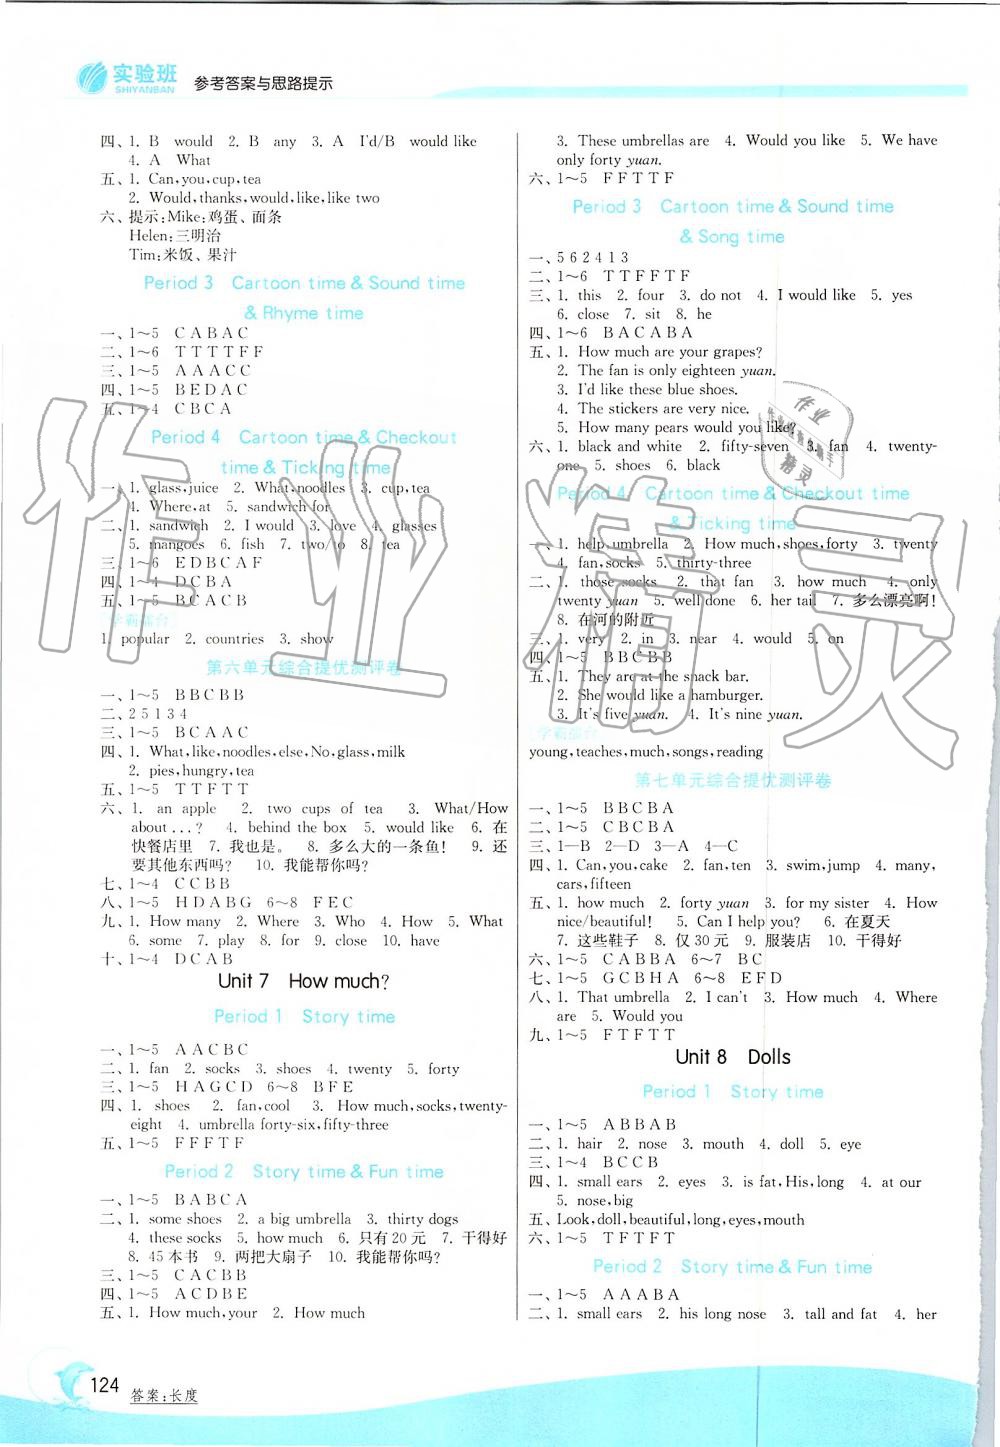 实验班
SHIYANBAN
参考答案与思路提示
四、1. B would 2. B any 3. A I'd/B would like
4. A What
五、1. Can,you,cup,tea
2. Would,thanks,would,like,like two
六、提示:Mike:鸡蛋、面条
Helen:三明治
Tim:米饭、果汁
Period 3 Cartoon time & Sound time
& Rhyme time
一、1～5 C A B A C
二、1～6 T T T T F F
三、1～5 A A A C C
四、1～5 B E D A C
五、1～4 C B C A
Period 4 Cartoon time & Checkout
time & Ticking time
一、1. glass,juice 2. What,noodles 3. cup,tea
4. Where,at 5. sandwich,for
二、1. sandwich 2. I would 3. love 4. glasses
5. mangoes 6. fish 7. two/to 8. tea
三、1～6 E D B C A F
四、1～4 D C B A
五、1～5 B C A C B
学霸擂台
1. popular 2. countries 3. show
第六单元综合提优测评卷
一、1～5 B B C B B
二、2 5 1 3 4
三、1～5 B C A A C
四、1. What,like,noodles,else,No,glass,milk
2. pies,hungry,tea
五、1～5 T T F T T
六、1. an apple 2. two cups of tea 3. What/How
about...? 4. behind the box 5. would like 6. 在
快餐店里 7. 我也是。 8. 多么大的一条鱼! 9. 还
要其他东西吗? 10. 我能帮你吗?
七、1～4 C C B B
八、1～5 H D A B G 6～8 F E C
九、1. How many 2. Where 3. Who 4. How 5. What
6. some 7. play 8. for 9. close 10. have
十、1～4 D C A B
Unit 7 How much?
Period 1 Story time
一、1～5 A A C B C
二、1. fan 2. socks 3. shoes 4. twenty 5. forty
三、1～5 H A G C D 6～8 B F E
四、1. shoes 2. fan,cool 3. How much,socks,twenty-
eight 4. umbrella forty-six,fifty-three
五、1～5 F F F T F
Period 2 Story time & Fun time
一、1～5 B A B C A
二、1. some shoes 2. a big umbrella 3. thirty dogs
4. these socks 5. how much 6. 只有20元 7. 干得好
8. 45本书 9. 两把大扇子 10. 我能帮你吗?
三、1～5 C A C B B
四、1～5 A C D B E
五、1. How much,your 2. How much
3. These umbrellas are 4. Would you like 5. We have
only forty yuan.
六、1～5 F F T T F
Period 3 Cartoon time & Sound time
& Song time
一、5 6 2 4 1 3
二、1～6 T T F F T F
三、1. this 2. four 3. do not 4. I would like 5. yes
6. close 7. sit 8. he
四、1～6 B A C A B A
五、1. How much are your grapes?
2. The fan is only eighteen yuan.
3. I'd like these blue shoes.
4. The stickers are very nice.
5. How many pears would you like?
六、1. black and white 2. fifty-seven 3. fan 4. twenty-
one 5. shoes 6. black
Period 4 Cartoon time & Checkout time
& Ticking time
一、1. help,umbrella 2. How much,shoes,forty 3. twenty
4. fan,socks 5. thirty-three
二、1. those socks 2. that fan 3. how much 4. only
twenty yuan 5. well done 6. her tail 7. 多么漂亮啊!
8. 在河的附近
三、1. very 2. in 3. near 4. would 5. on
四、1～5 B B C B B
五、1. They are at the snack bar.
2. She would like a hamburger.
3. It's five yuan. 4. It's nine yuan.
学霸擂台
young,teaches,much,songs,reading
第七单元综合提优测评卷
一、1～5 B B C B A
二、1～5 C B C B A
三、1—B 2—D 3—A 4—C
四、1. Can,you,cake 2. fan,ten 3. swim,jump 4. many,
cars,fifteen
五、1. how much 2. forty yuan 3. for my sister 4. How
nice/beautiful! 5. Can I help you? 6. 在夏天
7. 这些鞋子 8. 仅30元 9. 服装店 10. 干得好
六、1～5 C A B B A 6～7 B C
七、1～5 G C B H A 6～8 E F D
八、1. That umbrella 2. I can't 3. How much 4. Where
are 5. Would you
九、1～5 F T F T T
Unit 8 Dolls
Period 1 Story time
一、1～5 A B B A B
二、1. hair 2. nose 3. mouth 4. doll 5. eye
三、1～4 B C C B
四、1. small ears 2. eyes 3. is fat,His,long 4. at our
5. nose,big
五、Look,doll,beautiful,long,eyes,mouth
六、1～5 T F T F T
Period 2 Story time & Fun time
一、1～5 A A A B A
二、1. small ears 2. his long nose 3. tall and fat 4. her
124
答案:长度
作业精灵
作业
精灵